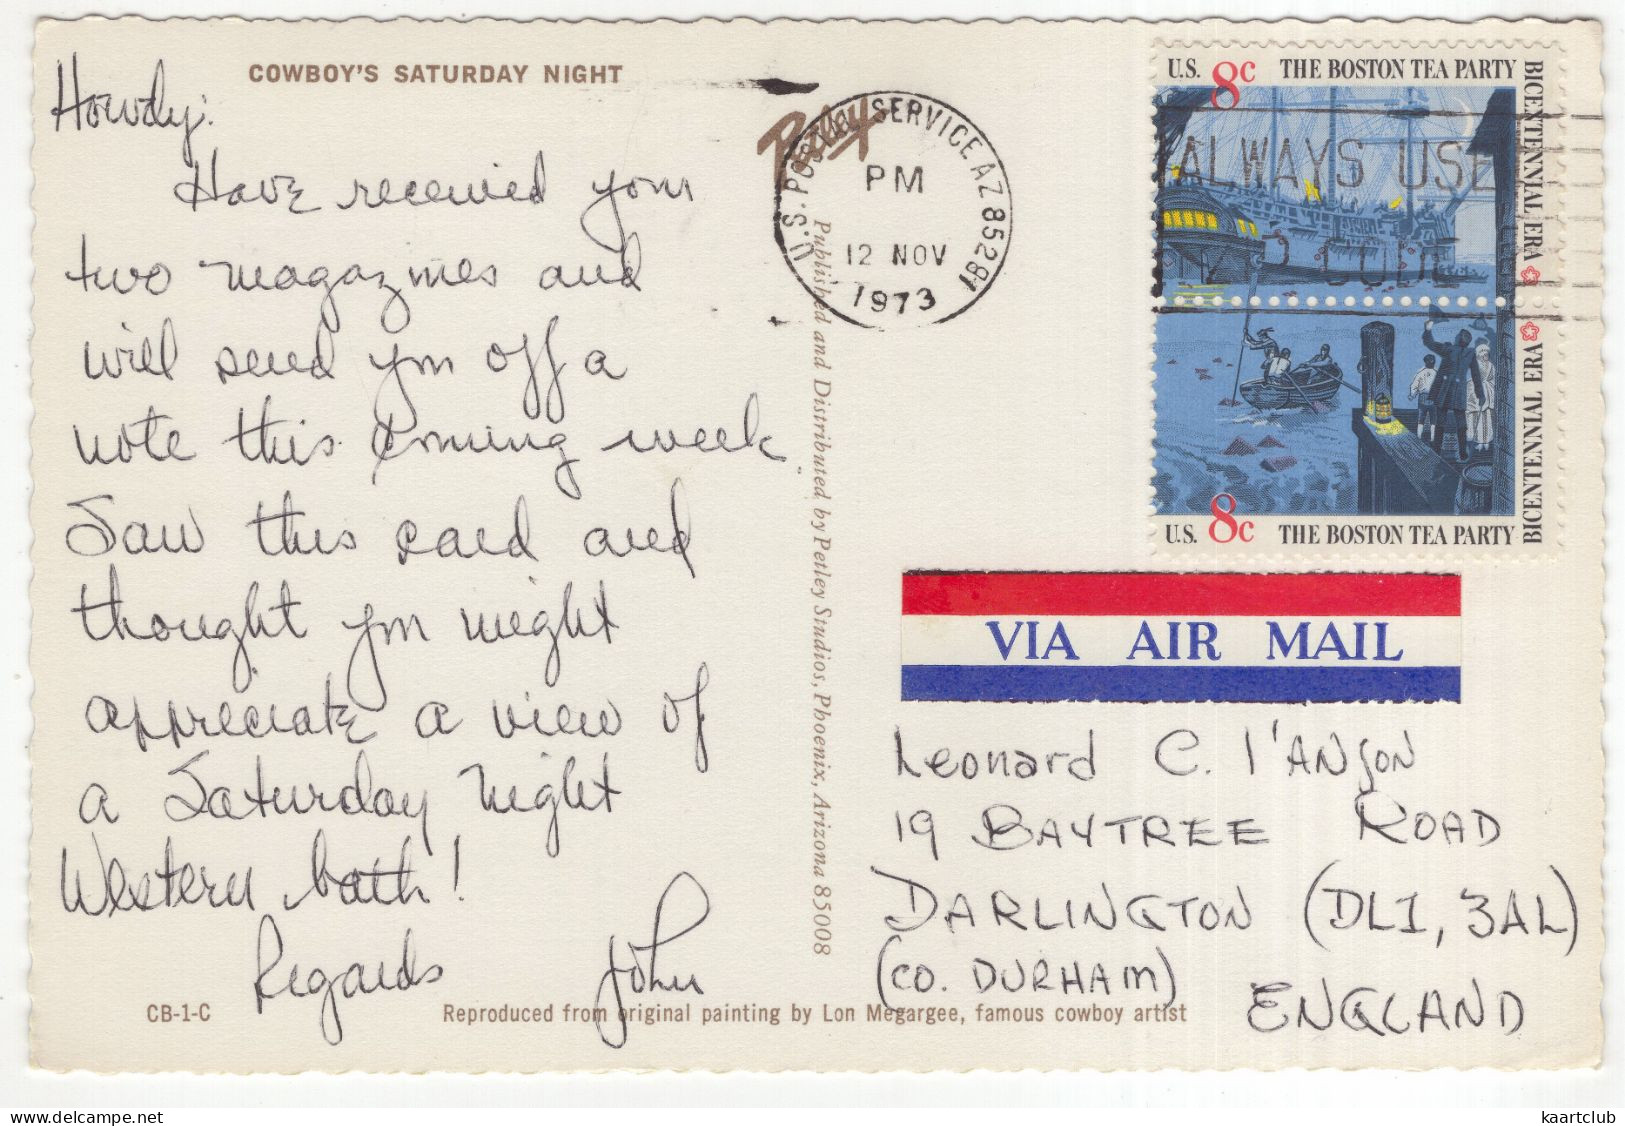 COWBOY'S SATURDAY NIGHT
Howdy:
Have received your
two magazines and
will send you off a
note this coming week
Saw this card and
thought you might
appreciate a view of
a Saturday night
Western bath!
Regards John
CB-1-C
Reproduced from original painting by Lon Megargee, famous cowboy artist
Petley
Published and Distributed by Petley Studios, Phoenix, Arizona 85008
U.S. POSTAL SERVICE AZ 85281
PM
12 NOV
1973
U.S. 8c THE BOSTON TEA PARTY
BICENTENNIAL ERA
ALWAYS USE
ZIP CODE
BICENTENNIAL ERA
U.S. 8c THE BOSTON TEA PARTY
VIA AIR MAIL
Leonard C. I'ANSON
19 BAYTREE ROAD
DARLINGTON (DL1, 3AL)
(CO. DURHAM)
ENGLAND
delcampe.net
kaartclub